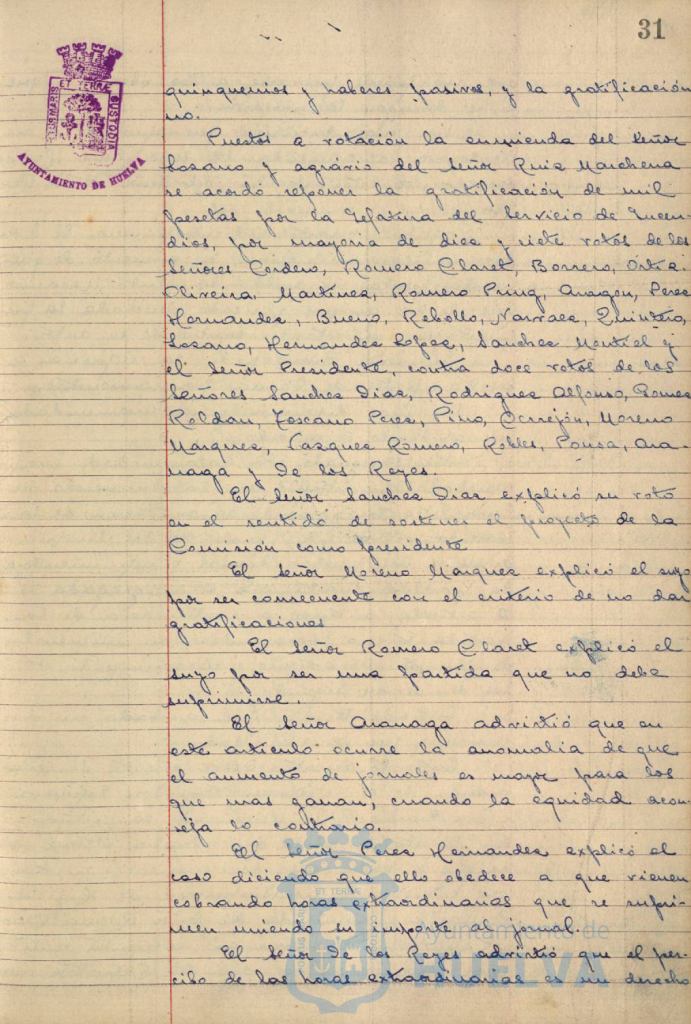 31
PORTUS MARIS ET TERRAE CUSTODIA
AYUNTAMIENTO DE HUELVA
quinquenios y haberes pasivos, y la gratificación
no.
Puestos a votación la enmienda del Señor
Lozano y agrário del Señor Ruiz Marchena
se acordó reponer la gratificación de mil
pesetas por la Jefatura del Servicio de Incen-
dios, por mayoria de diez y siete votos de los
Señores Cordero, Romero Claret, Borrero, Ortiz,
Oliveira, Martinez, Romero Pring, Aragon, Perez
Hernandez, Bueno, Rebollo, Narvaez, Quintero,
Lozano, Hernandez Lopez, Sanchez Montiel y
el Señor Presidente, contra doce votos de los
Señores Sanchez Diaz, Rodriguez Alfonso, Gomez
Roldan, Toscano Perez, Pino, Cerrejón, Moreno
Marquez, Vazquez Romero, Robles, Ponsa, Ara-
naga y De los Reyes.
El Señor Sanchez Diaz explicó su voto
en el sentido de sostener el proyecto de la
Comisión como presidente
El Señor Moreno Marquez explicó el suyo
por ser consecuente con el criterio de no dar
gratificaciones
El Señor Romero Claret explicó el
suyo por ser una partida que no debe
suprimirse.
El Señor Aranaga advirtió que en
este articulo ocurre la anomalia de que
el aumento de jornales es mayor para los
que mas ganan, cuando la equidad acon-
seja lo contrario.
El Señor Perez Hernandez explicó el
caso diciendo que ello obedece a que vienen
cobrando horas extraordinarias que se supri-
men uniendo su importe al jornal.
El Señor De los Reyes advirtió que el per-
cibo de las horas extraordinarias es un derecho
Ayuntamiento de
HUELVA